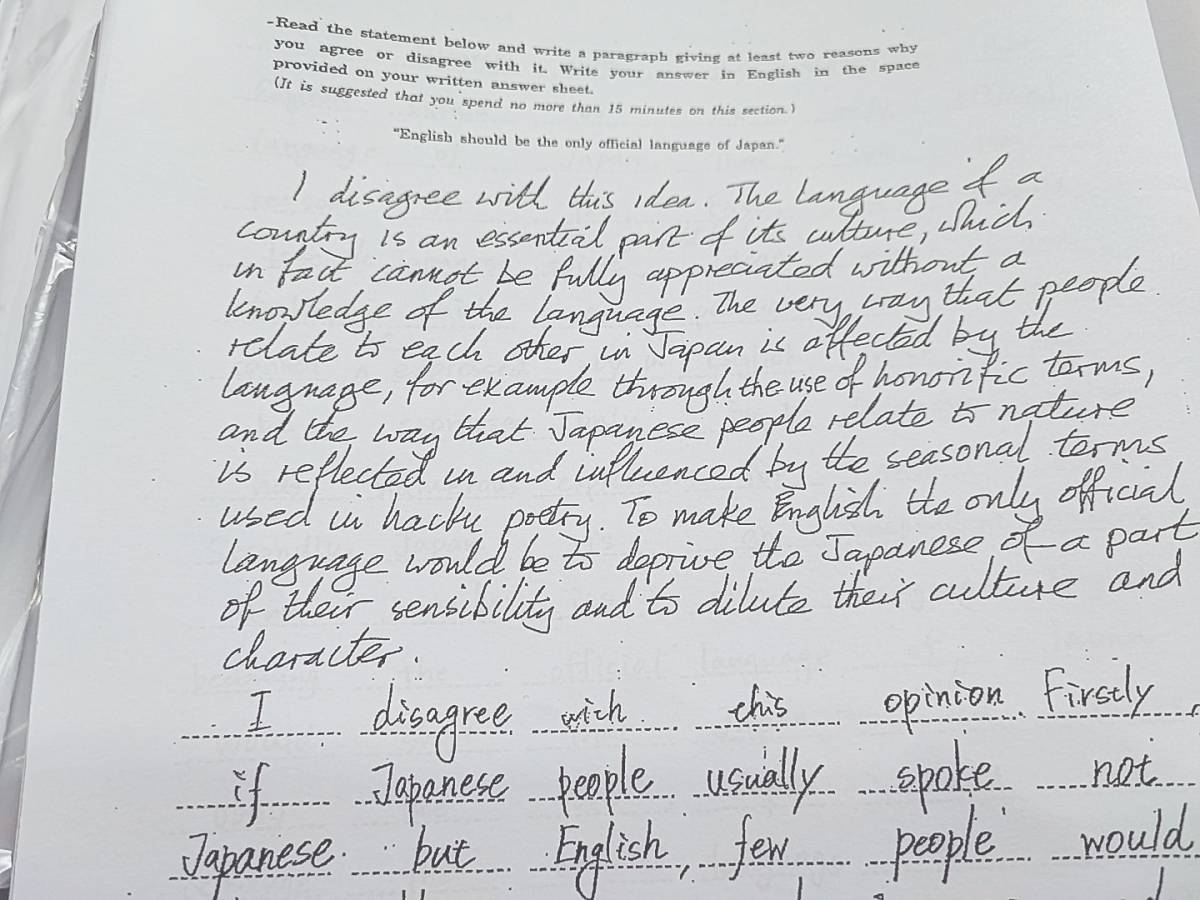 -Read the statement below and write a paragraph giving at least two reasons why
you agree or disagree with it. Write your answer in English in the space
provided on your written answer sheet.
(It is suggested that you spend no more than 15 minutes on this section.)
"English should be the only official language of Japan."
I disagree with this idea. The language of a
country is an essential part of its culture, which
in fact cannot be fully appreciated without a
knowledge of the language. The very way that people
relate to each other in Japan is affected by the
language, for example through the use of honorific terms,
and the way that Japanese people relate to nature
is reflected in and influenced by the seasonal terms
used in hacku poetry. To make English the only official
language would be to deprive the Japanese of a part
of their sensibility and to dilute their culture and
character.
I disagree with this opinion. Firstly,
if Japanese people usually spoke not
Japanese but English, few people would